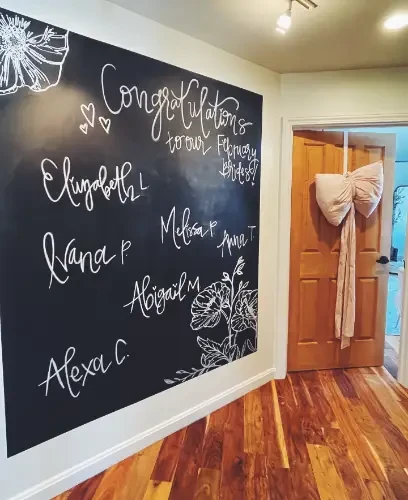 Congratulations
to our February
brides!
Elizabeth L
Melissa P.
Anna T.
Ivana P.
Abigail M
Alexa C.